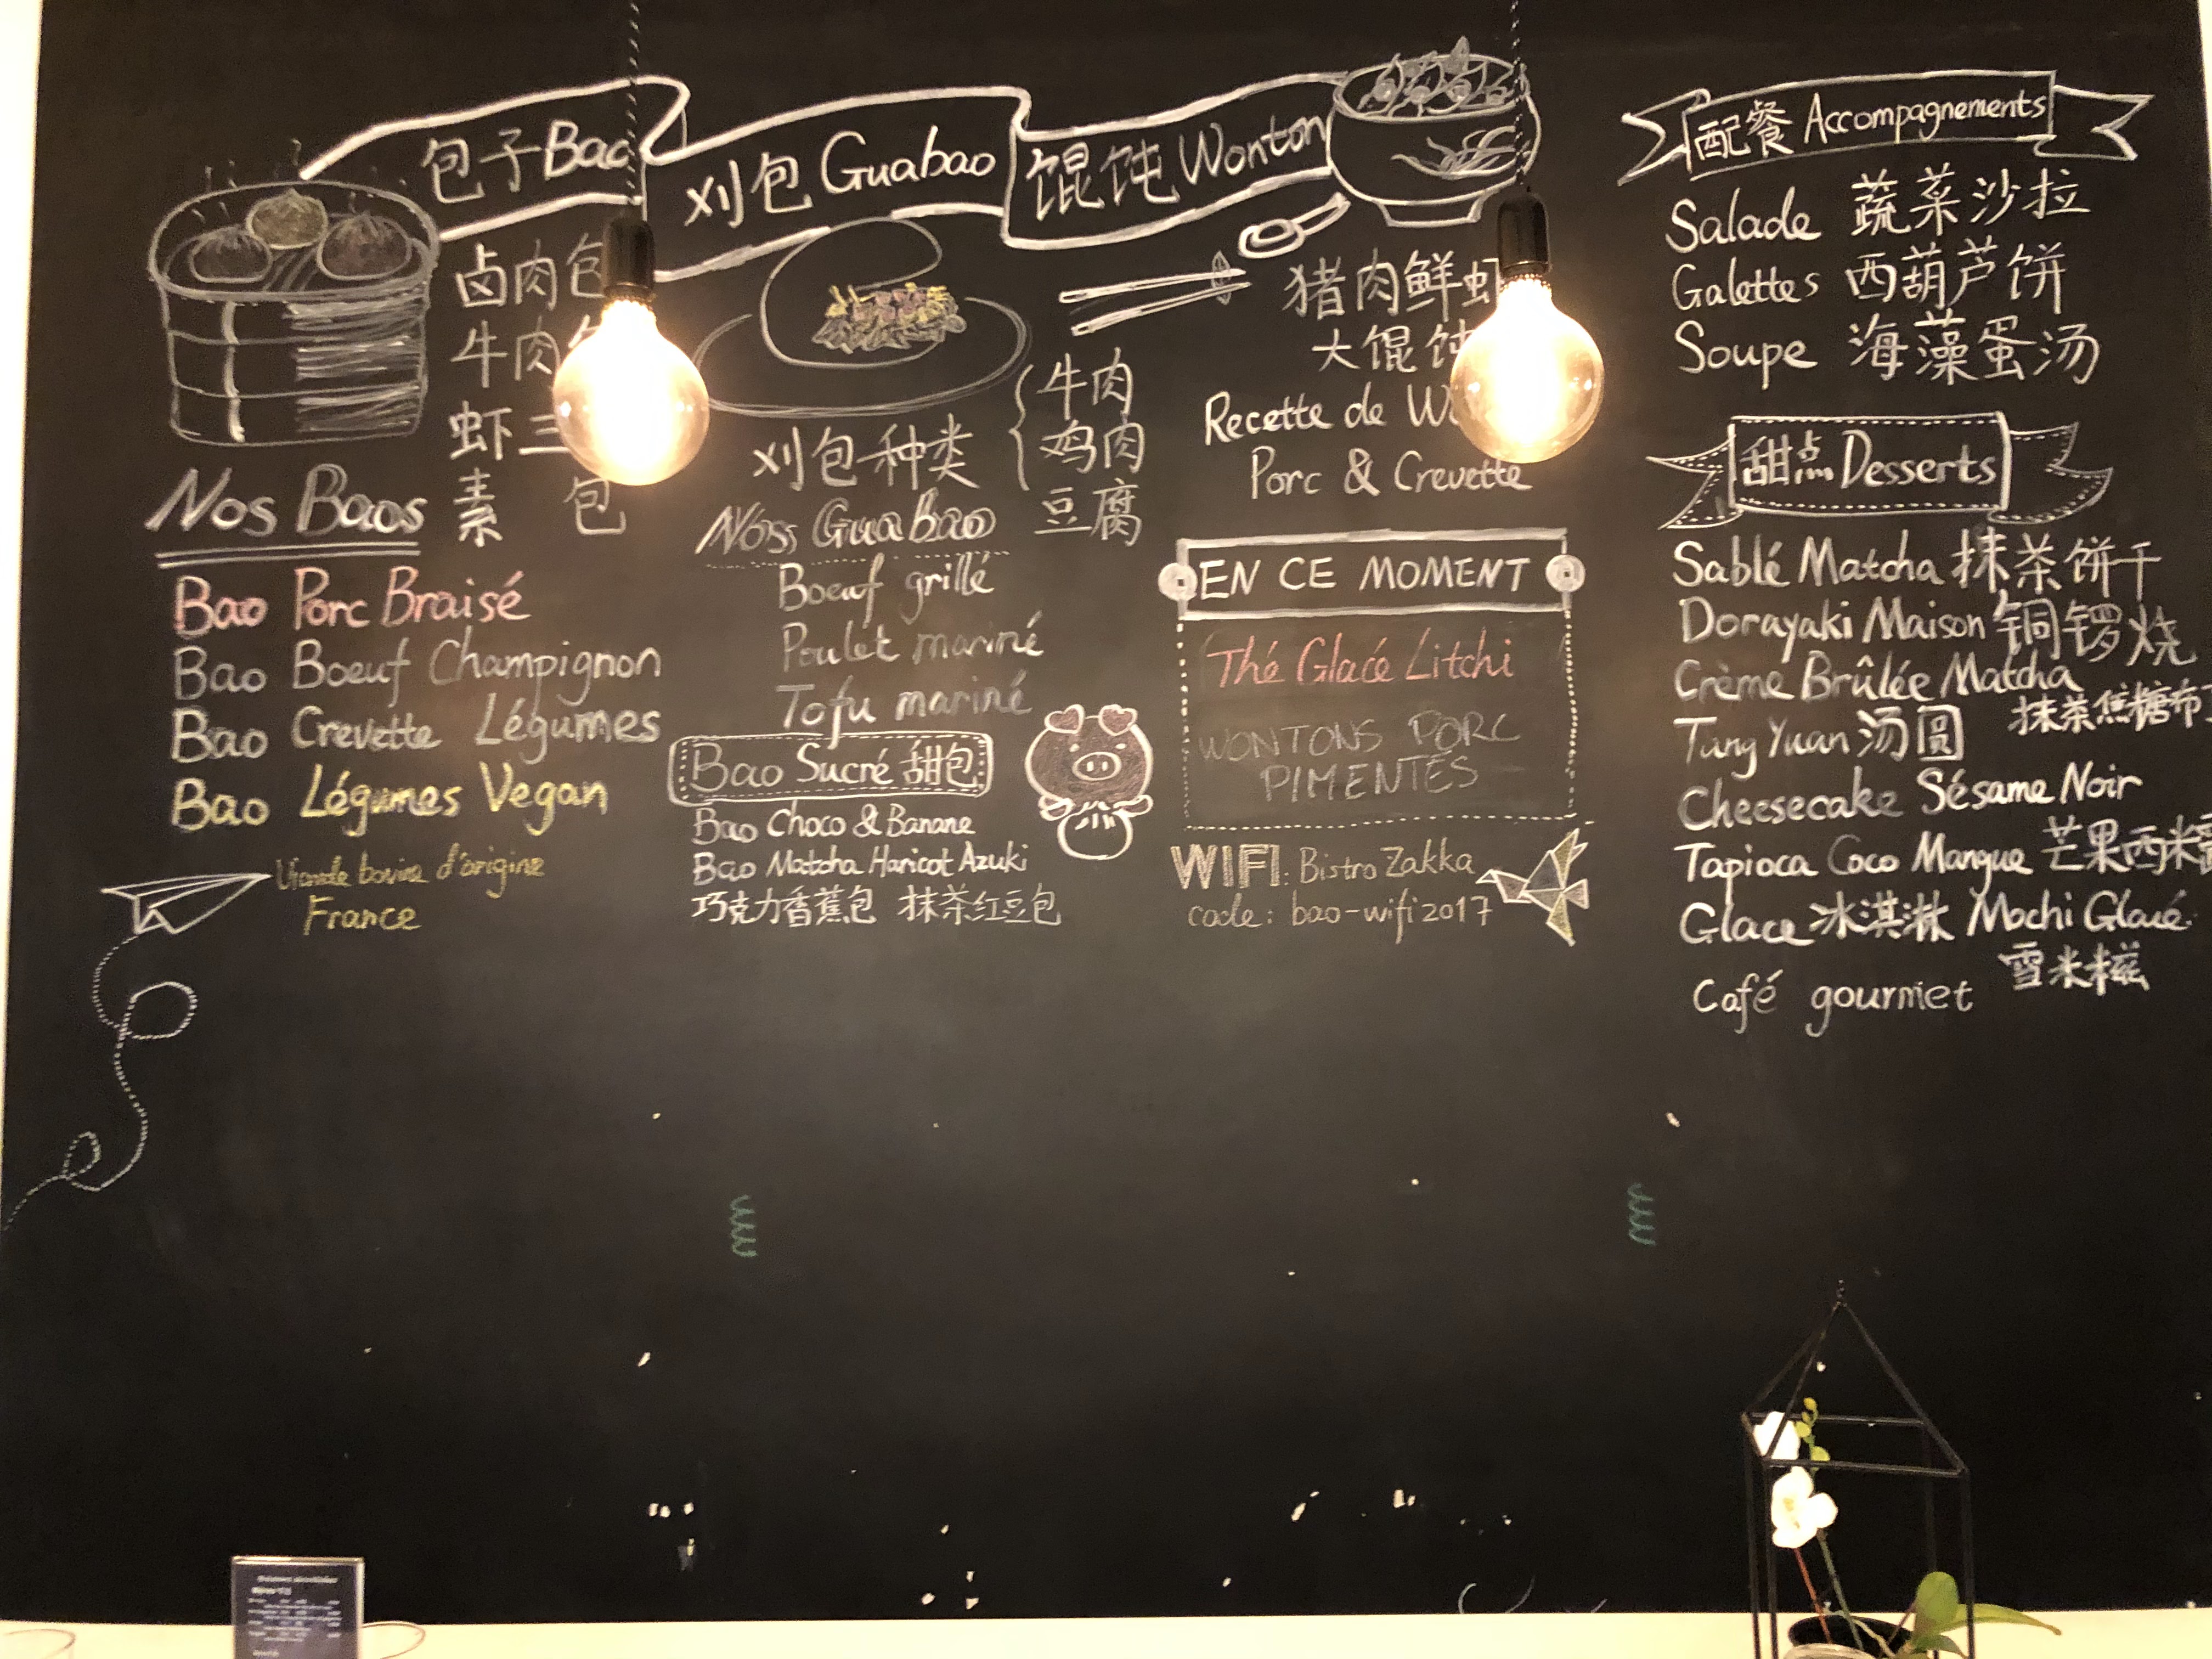 包子 Bao
卤肉包
牛肉
虾三
素 包
Nos Baos
Bao Porc Braisé
Bao Boeuf Champignon
Bao Crevette Légumes
Bao Légumes Vegan
Viande bovine d'origine
France
刈包 Guabao
刈包种类
牛肉
鸡肉
豆腐
Nos Gua Bao
Boeuf grillé
Poulet mariné
Tofu mariné
Bao Sucré 甜包
Bao Choco & Banane
Bao Matcha Haricot Azuki
巧克力香蕉包 抹茶红豆包
馄饨 Wonton
猪肉鲜虾
大馄饨
Recette de
Porc & Crevette
EN CE MOMENT
Thé Glacé Litchi
WONTONS PORC
PIMENTÉS
WIFI: Bistro Zakka
code: bao-wifi2017
配餐 Accompagnements
Salade 蔬菜沙拉
Galettes 西葫芦饼
Soupe 海藻蛋汤
甜点 Desserts
Sablé Matcha 抹茶饼干
Dorayaki Maison 铜锣烧
Crème Brûlée Matcha
抹茶焦糖布
Tang Yuan 汤圆
Cheesecake Sésame Noir
Tapioca Coco Mangue 芒果西米露
Glace 冰淇淋 Mochi Glacé
雪米糍
Café gourmet